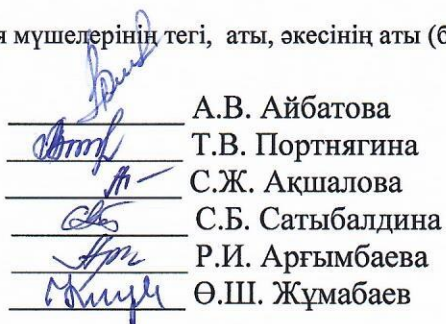 мүшелерінің тегі, аты, әкесінің аты (б
А.В. Айбатова
Т.В. Портнягина
С.Ж. Ақшалова
С.Б. Сатыбалдина
Р.И. Арғымбаева
Ө.Ш. Жұмабаев